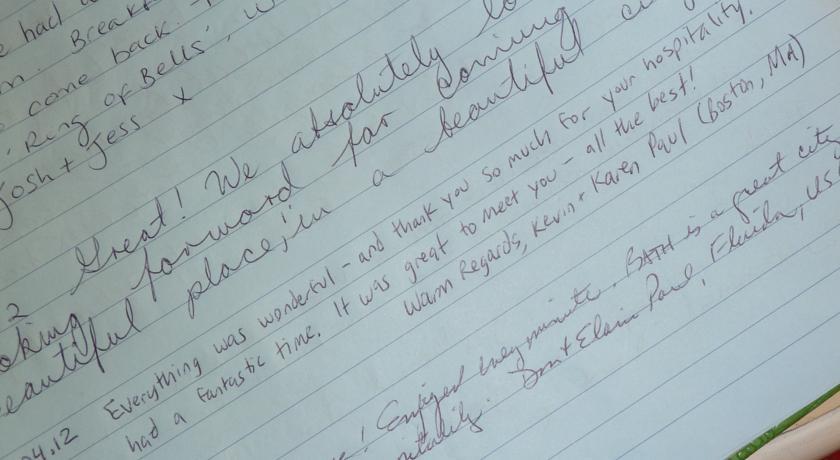 e had
Breakf
come back.
'Ring of Bells',
Josh + Jess x
2 Great! We absolutely lo
oking forward for coming
beautiful place, in a beautiful ci
04.12 Everything was wonderful - and thank you so much for your hospitality.
had a fantastic time. It was great to meet you - all the best!
Warm Regards, Kevin + Karen Paul (Boston, MA)
! Enjoyed every minute. BATH is a great city
pitality. Don + Elain Paul, Florida, US